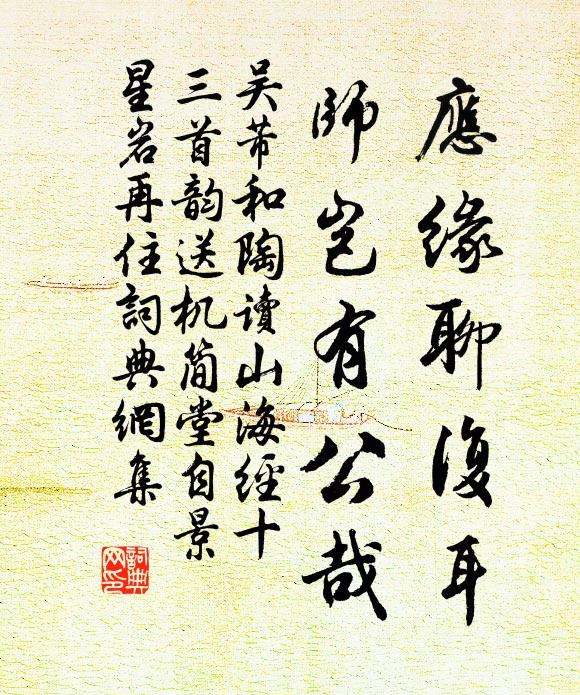 應緣聊復耳
師岂有公哉
吴芾和陶讀山海經十
三首韵送机简堂自景
星岩再住詞典網集
詞典
网印